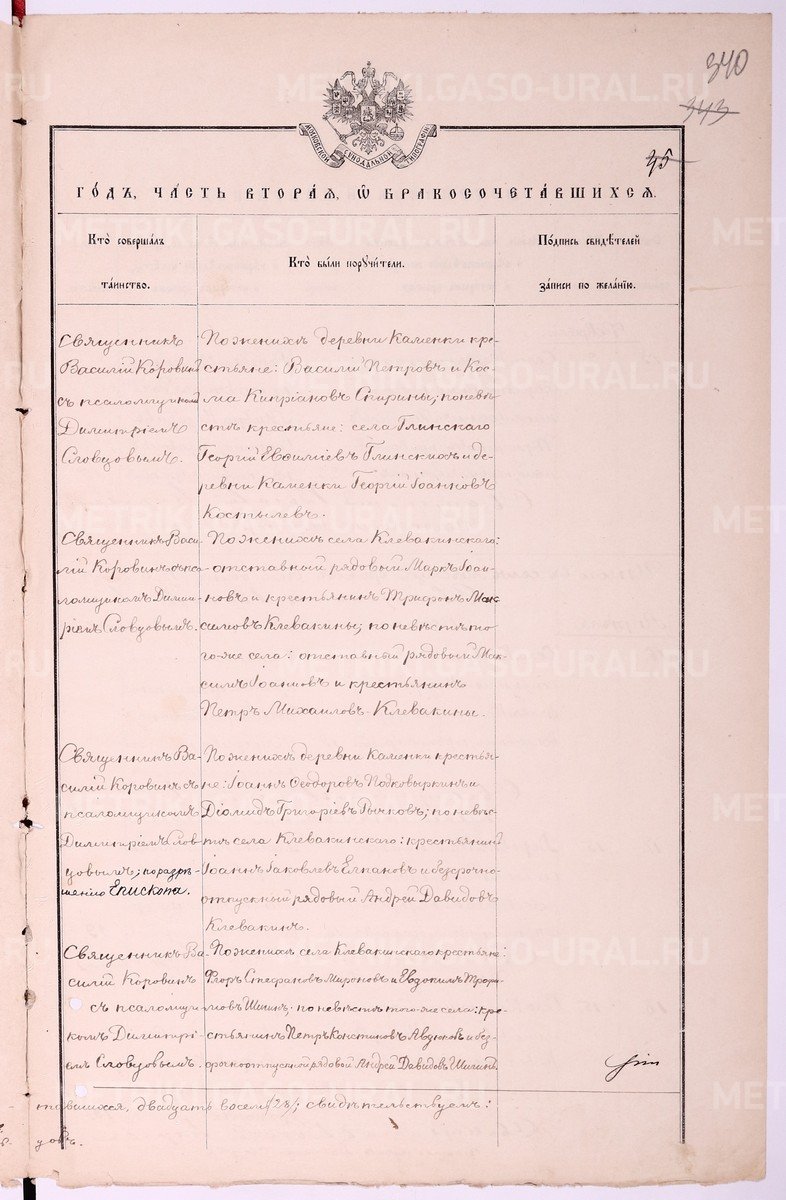 340
343
МОСКОВСКОЙ СѴНОДАЛЬНОЙ ТИПОГРАФІИ
45
ГО́ДЪ, ЧА́СТЬ ВТОРА́Я, Ѡ҆ БРАКОСОЧЕТА́ВШИХСЯ.
Кто̀ соверша́лъ та́инство.
Кто̀ бы́ли порꙋчи́тели.
По́дпись свидѣ́телей за́писи по жела́нїю.
Священникъ
Василій Коровинъ
съ псаломщикомъ
Димитріемъ
Словцовымъ.
По женихѣ деревни Каменки кре-
стьяне: Василій Петровъ и Кос-
ма Кипріановъ Спирины; по невѣ-
стѣ крестьяне: села Глинскаго
Георгій Евѳиміевъ Глинскихъ и де-
ревни Каменки Георгій Іоанновъ
Костылевъ.
Священникъ Васи-
лій Коровинъ съ пса-
ломщикомъ Димит-
ріемъ Словцовымъ.
По женихѣ села Клевакинскаго:
отставный рядовый Маркъ Іоан-
новъ и крестьянинъ Трифонъ Мак-
симовъ Клевакины; по невѣстѣ то-
го-же села: отставный рядовый Мак-
симъ Іоанновъ и крестьянинъ
Петръ Михаиловъ Клевакины.
Священникъ Ва-
силій Коровинъ съ
псаломщикомъ
Димитріемъ Слов-
цовымъ; по разрѣ-
шенію Епископа.
По женихѣ деревни Каменки крестья-
не: Іоаннъ Ѳеодоровъ Подковыркинъ и
Діомидъ Григоріевъ Рычковъ; по невѣс-
тѣ села Клевакинскаго: крестьянинъ
Іоаннъ Іаковлевъ Елпановъ и безсрочно-
отпускный рядовый Андрей Давидовъ
Клевакинъ.
Священникъ Ва-
силій Коровинъ
съ псаломщи-
комъ Димитрі-
емъ Словцовымъ.
По женихѣ села Клевакинскаго крестьяне:
Флоръ Стефановъ Мироновъ и Евдокимъ Трофи-
мовъ Шигинъ; по невѣстѣ того-же села: кре-
стьянинъ Петръ Константиновъ Авдюковъ и без-
срочноотпускной рядовой Андрей Давидовъ Шигинъ.
тавшихся, двадцать восемь /28/; свидѣтельствуемъ:
METRIKI.GASO-URAL.RU